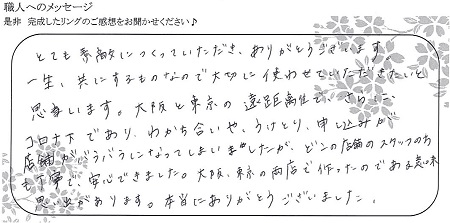 職人へのメッセージ
是非 完成したリングのご感想をお聞かせください♪
とても素敵につくっていただき、ありがとうございます。
一生、共にするものなので大切に使わせていただきたいと
思います。大阪と東京の遠距離で、さらに、
コロナ下であり、わかち合いや、うけとり、申し込みが
店舗がバラバラになってしまいましたが、どこの店舗のスタッフの方
も丁寧で、安心できました。大阪、東京の両店で作ったのである意味
思い出があります。本当にありがとうございました。